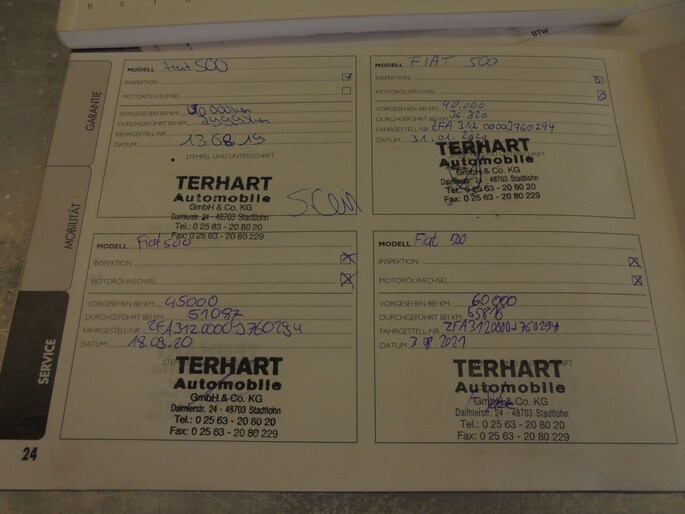 BTW
GARANTIE
MOBILITÄT
SERVICE
MODELL Fiat 500
INSPEKTION
MOTORÖLWECHSEL
VORGESEHEN BEI KM
DURCHGEFÜHRT BEI KM
FAHRGESTELL-NR.
DATUM 13.08.19
STEMPEL UND UNTERSCHRIFT
TERHART
Automobile
GmbH & Co. KG
Daimlerstr. 24 - 48703 Stadtlohn
Tel.: 0 25 63 - 20 80 20
Fax: 0 25 63 - 20 80 229
MODELL FIAT 500
INSPEKTION
MOTORÖLWECHSEL
VORGESEHEN BEI KM 40.000
DURCHGEFÜHRT BEI KM 36.820
FAHRGESTELL-NR. ZFA3120000J760294
DATUM 31.01.2020
TERHART
Automobile
GmbH & Co. KG
Daimlerstr. 24 - 48703 Stadtlohn
Tel.: 0 25 63 - 20 80 20
Fax: 0 25 63 - 20 80 229
MODELL Fiat 500
INSPEKTION
MOTORÖLWECHSEL
VORGESEHEN BEI KM 45000
DURCHGEFÜHRT BEI KM 51087
FAHRGESTELL-NR. ZFA3120000J760294
DATUM 18.09.20
TERHART
Automobile
GmbH & Co. KG
Daimlerstr. 24 - 48703 Stadtlohn
Tel.: 0 25 63 - 20 80 20
Fax: 0 25 63 - 20 80 229
MODELL Fiat 500
INSPEKTION
MOTORÖLWECHSEL
VORGESEHEN BEI KM 60000
DURCHGEFÜHRT BEI KM
FAHRGESTELL-NR. ZFA3120000J760294
DATUM
TERHART
Automobile
GmbH & Co. KG
Daimlerstr. 24 - 48703 Stadtlohn
Tel.: 0 25 63 - 20 80 20
Fax: 0 25 63 - 20 80 229
24